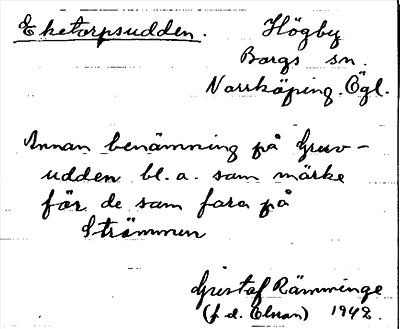 Eketorpsudden. Högby
Borgs sn.
Norrköping. Ögl.
Annan benämning på Gruv-
udden bl. a. som märke
för de som fara på
Strömmen
Gustaf Rämminge
(f. d. Elvan) 1942.